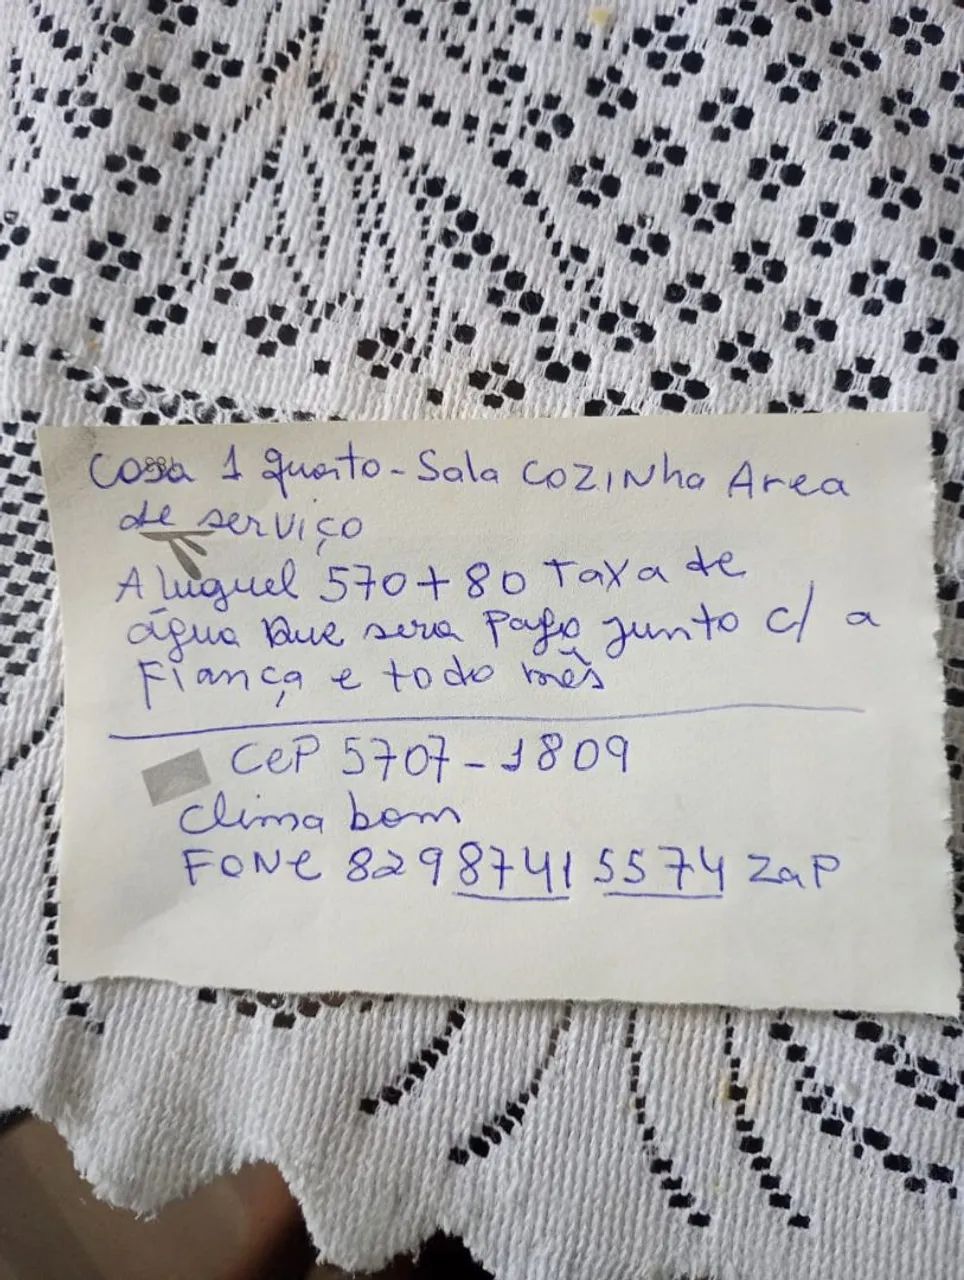 Casa 1 quarto - Sala COZINha Area
de serviço
Aluguel 570 + 80 Taxa de
água que sera Pago junto c/ a
Fiança e todo mês
CeP 5707-1809
Clima bom
FONE 829 8741 5574 ZaP